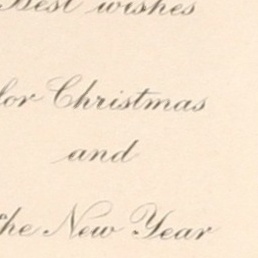 Best wishes
for Christmas
and
the New Year